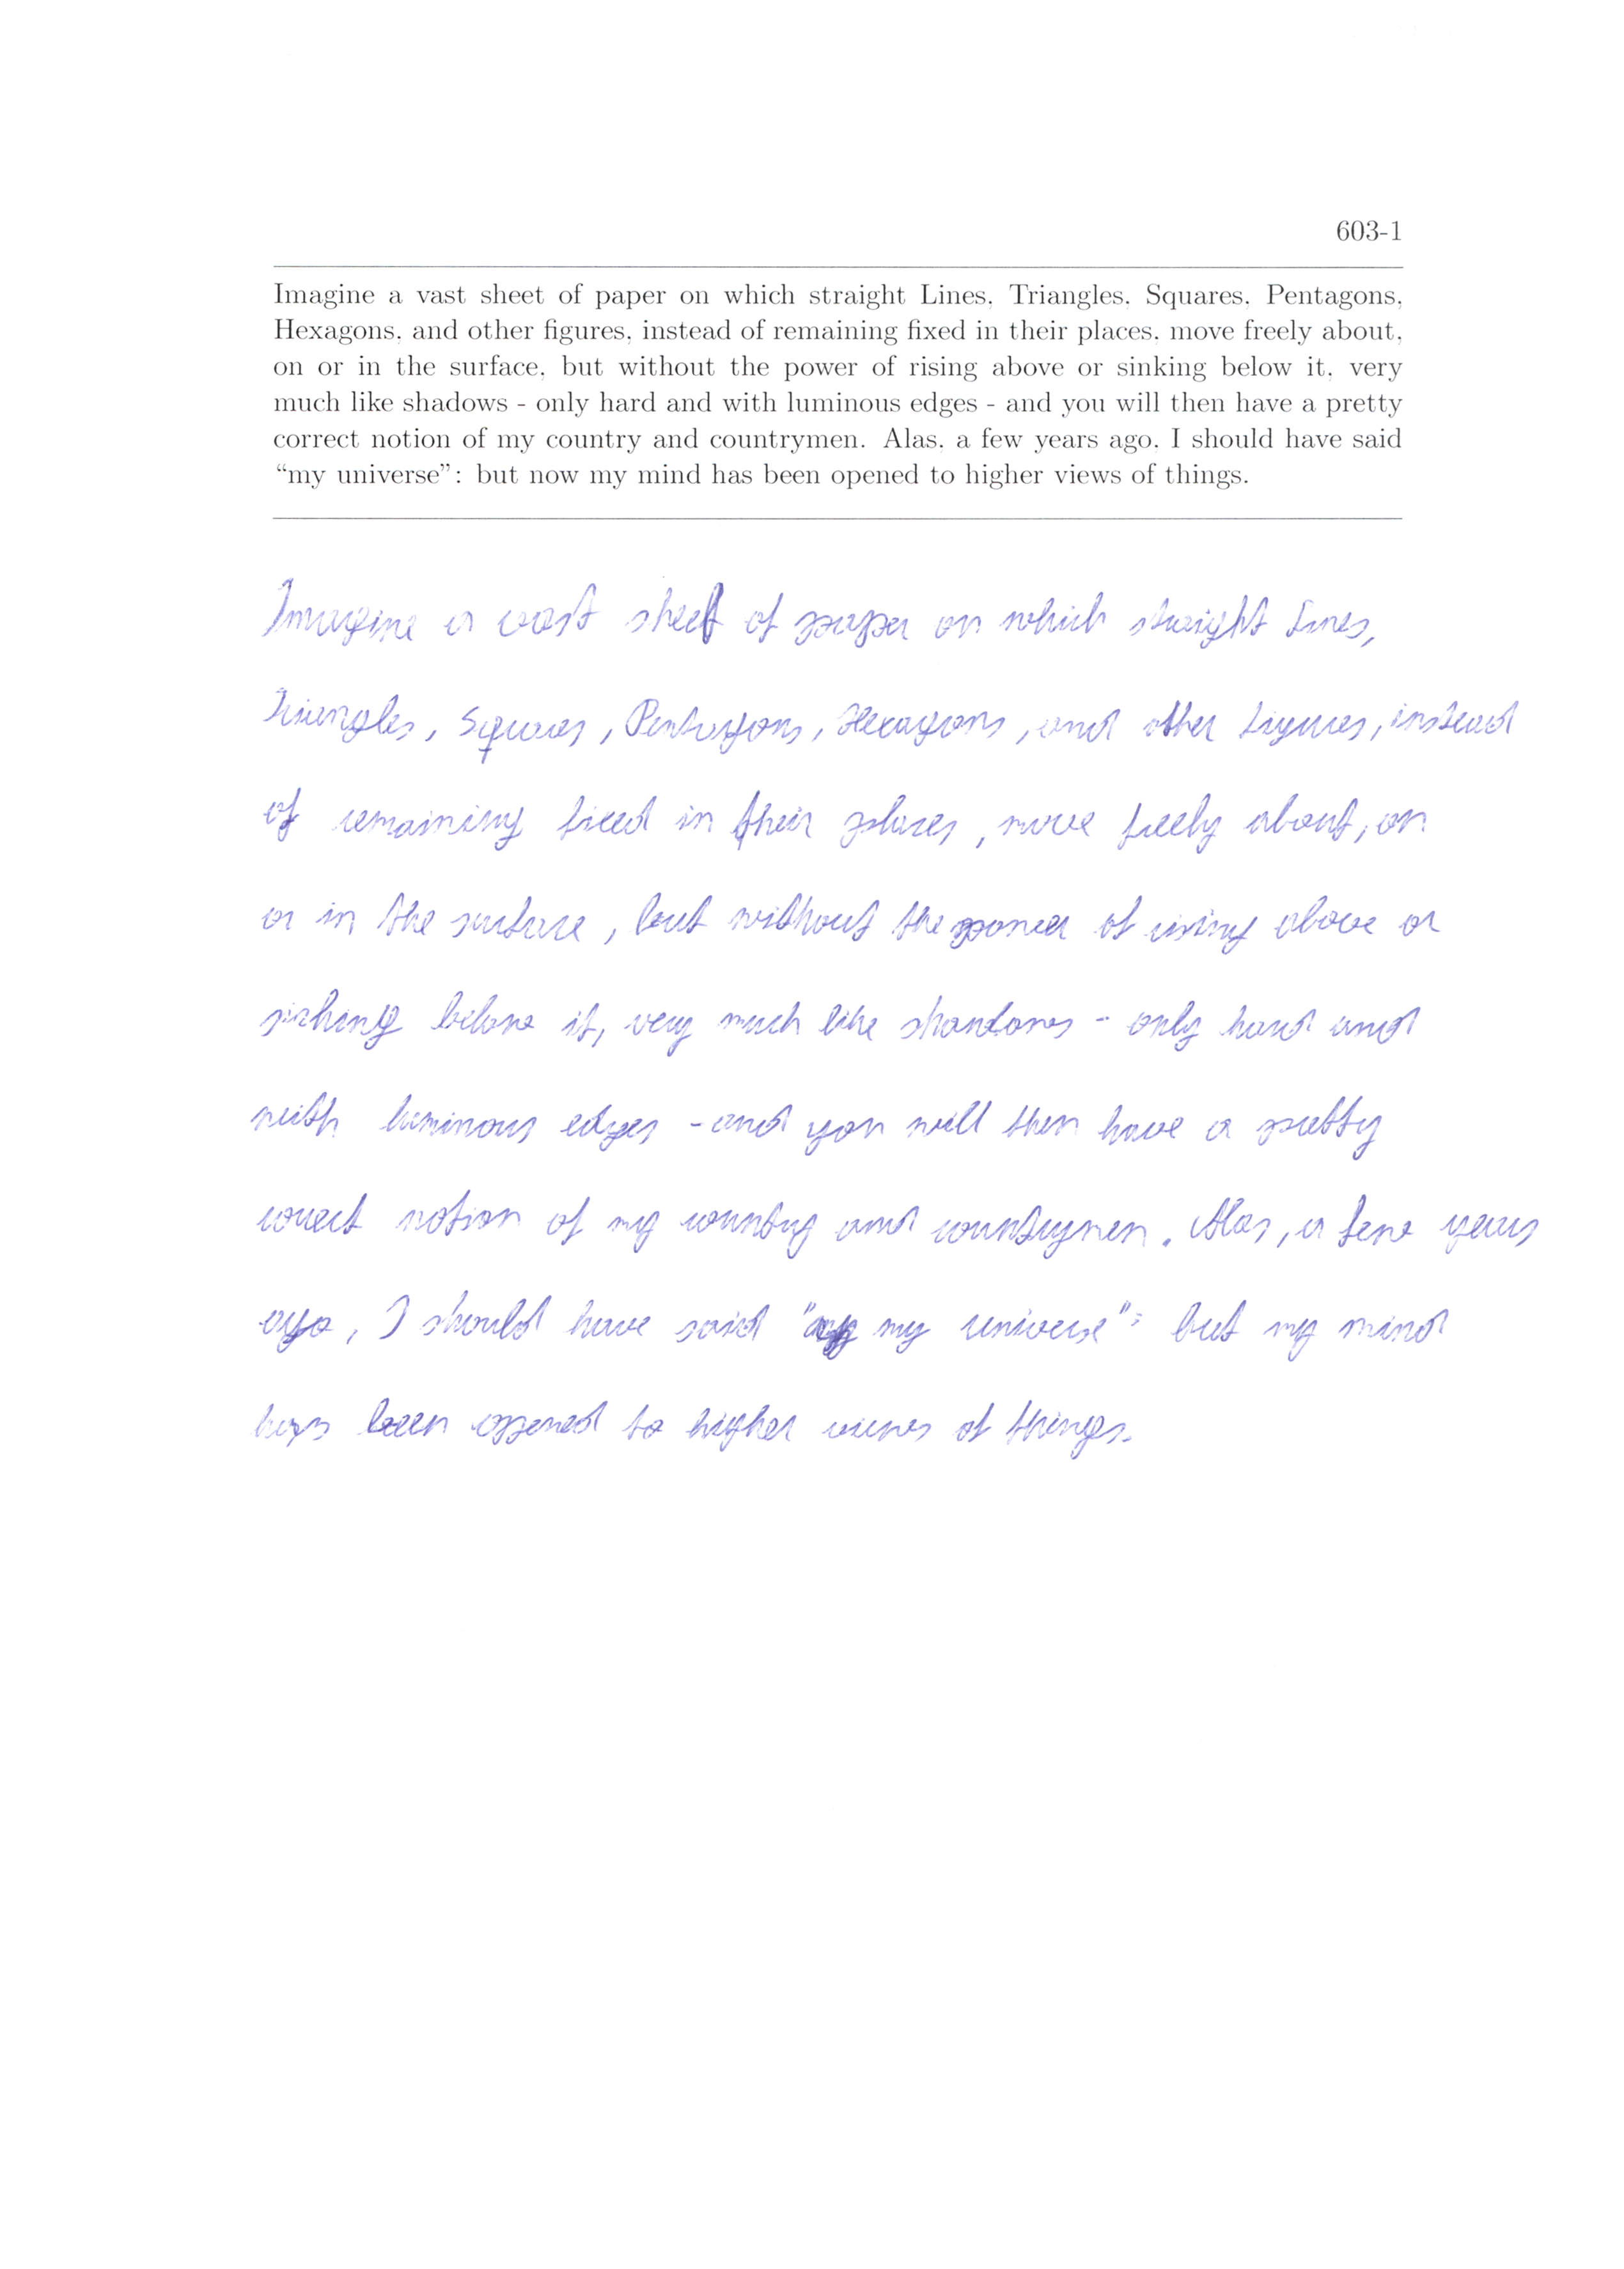 603-1
Imagine a vast sheet of paper on which straight Lines, Triangles, Squares, Pentagons,
Hexagons, and other figures, instead of remaining fixed in their places, move freely about,
on or in the surface, but without the power of rising above or sinking below it, very
much like shadows - only hard and with luminous edges - and you will then have a pretty
correct notion of my country and countrymen. Alas, a few years ago, I should have said
“my universe”: but now my mind has been opened to higher views of things.
Imagine a vast sheet of paper on which straight Lines,
Triangles, Squares, Pentagons, Hexagons, and other figures, instead
of remaining fixed in their places, move freely about, on
or in the surface, but without the power of rising above or
sinking below it, very much like shandows - only hard and
with luminous edges - and you will then have a pretty
correct notion of my country and countrymen. Alas, a few years
ago, I should have said "my universe": but my mind
has been opened to higher views of things.